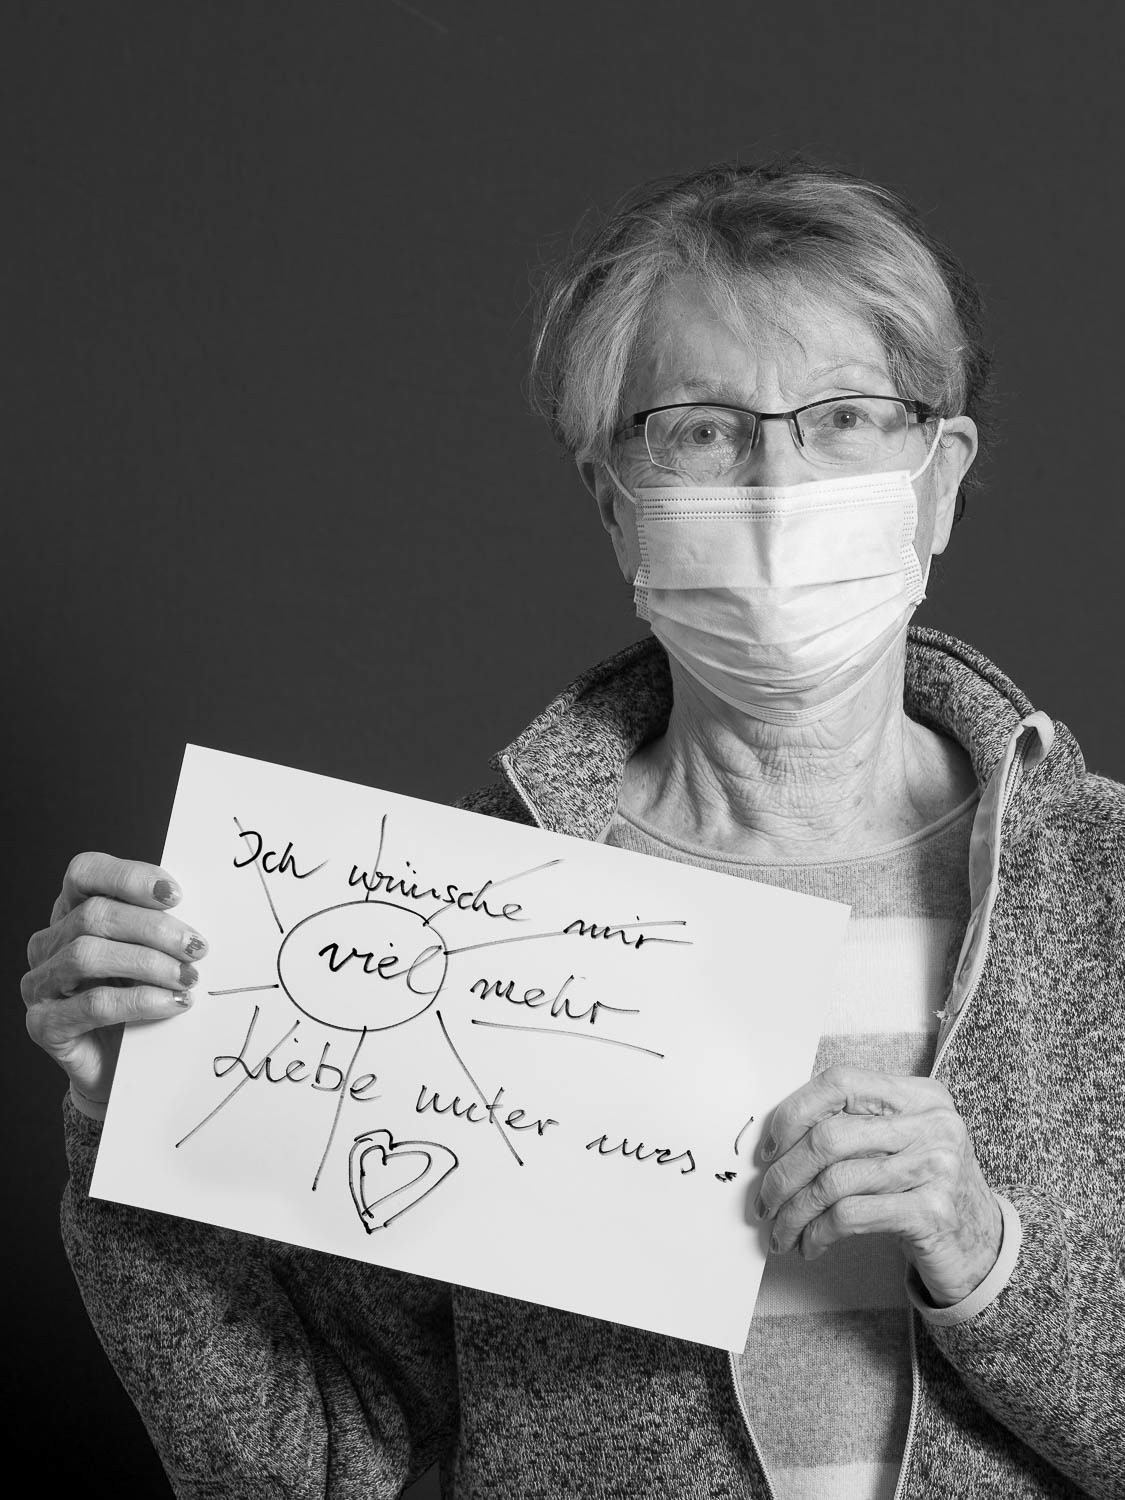 Ich wünsche mir
viel mehr
Liebe unter uns!